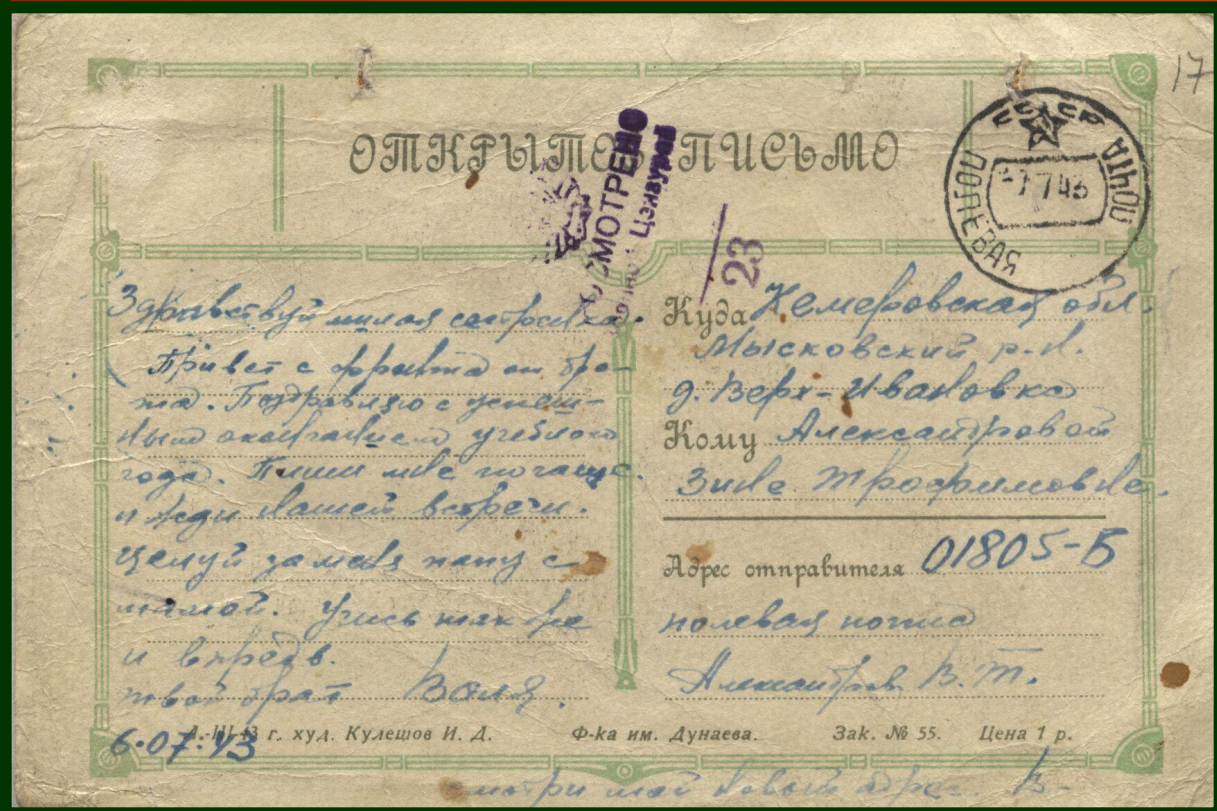 17
ОТКРЫТОЕ ПИСЬМО
СССР
ПОЛЕВАЯ ПОЧТА
-7 7 43
ПРОСМОТРЕНО
Военной Цензурой
23
Здравствуй милая сестренка.
Привет с фронта от бра-
та. Поздравляю с успеш-
ным окончанием учебного
года. Пиши мне почаще.
и жди нашей встречи.
Целуй за меня папу с
мамой. Учись так же
и впредь.
твой брат Валя.
6.07.43
Куда Кемеровская обл.
Мысковский р-н.
д. Верх-Ивановка
Кому Александровой
Зине Трофимовне.
Адрес отправителя 01805-Б
полевая почта
Александров В.Т.
А.-III-43 г. худ. Кулешов И. Д. Ф-ка им. Дунаева. Зак. № 55. Цена 1 р.
смотри мой новый адрес. В-